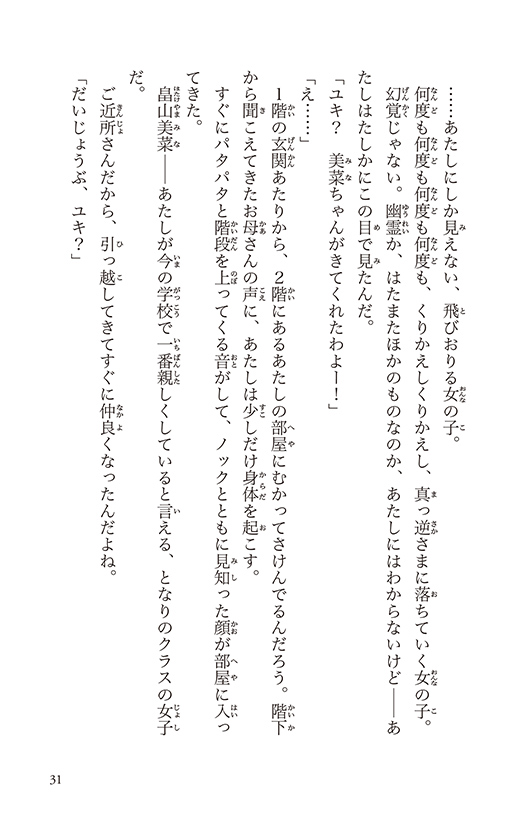 ……あたしにしか見えない、飛びおりる女の子。
何度も何度も何度も何度も、くりかえしくりかえし、真っ逆さまに落ちていく女の子。
幻覚じゃない。幽霊か、はたまたほかのものなのか、あたしにはわからないけど――あ
たしはたしかにこの目で見たんだ。
「ユキ？　美菜ちゃんがきてくれたわよー！」
「え……」
１階の玄関あたりから、２階にあるあたしの部屋にむかってさけんでるんだろう。階下
から聞こえてきたお母さんの声に、あたしは少しだけ身体を起こす。
すぐにパタパタと階段を上ってくる音がして、ノックとともに見知った顔が部屋に入っ
てきた。
畠山美菜――あたしが今の学校で一番親しくしていると言える、となりのクラスの女子
だ。
ご近所さんだから、引っ越してきてすぐに仲良くなったんだよね。
「だいじょうぶ、ユキ？」
31